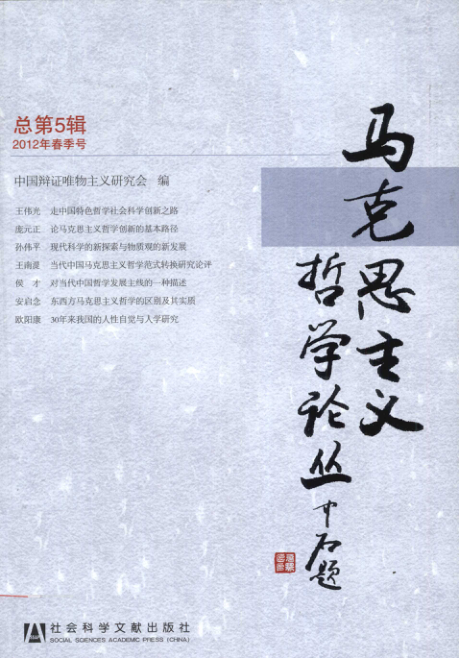 总第5辑
2012年春季号
中国辩证唯物主义研究会 编
王伟光 走中国特色哲学社会科学创新之路
庞元正 论马克思主义哲学创新的基本路径
孙伟平 现代科学的新探索与物质观的新发展
王南湜 当代中国马克思主义哲学范式转换研究论评
侯才 对当代中国哲学发展主线的一种描述
安启念 东西方马克思主义哲学的区别及其实质
欧阳康 30年来我国的人性自觉与人学研究
马克思主义
哲学论丛
中石题
社会科学文献出版社
SOCIAL SCIENCES ACADEMIC PRESS (CHINA)